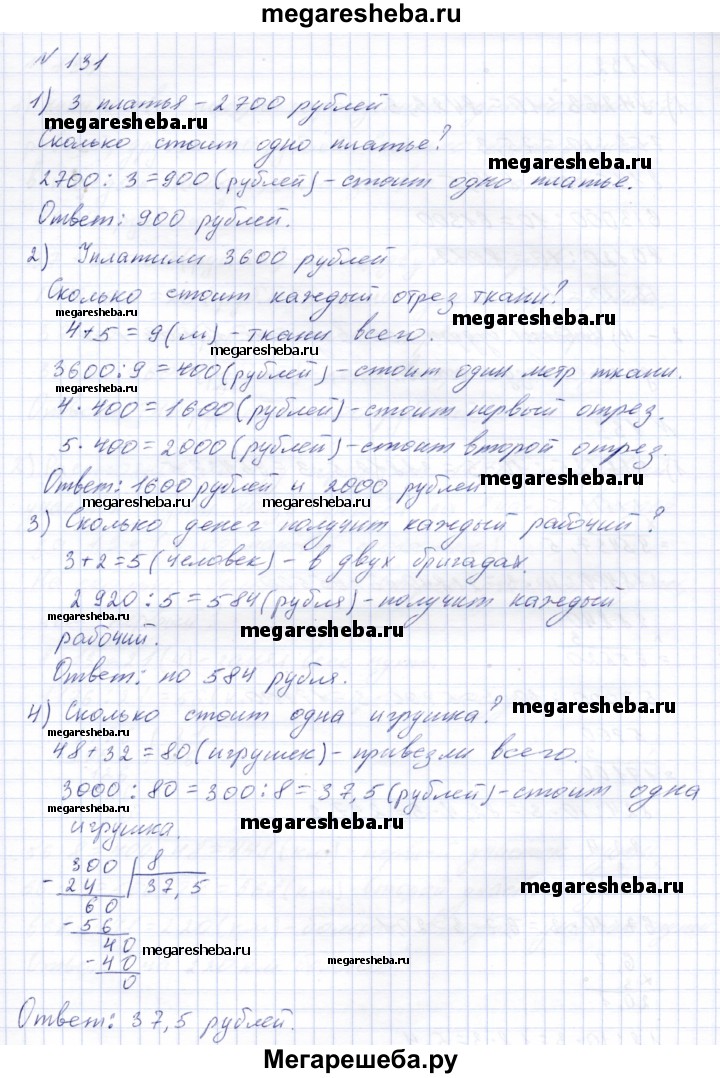 megaresheba.ru
N 131
1) 3 платья - 2700 рублей
megaresheba.ru
Сколько стоит одно платье?
megaresheba.ru
2700 : 3 = 900 (рублей) - стоит одно платье.
megaresheba.ru
Ответ: 900 рублей.
2) Уплатили 3600 рублей
Сколько стоит каждый отрез ткани?
megaresheba.ru
4 + 5 = 9 (м) - ткани всего.
megaresheba.ru
3600 : 9 = 400 (рублей) - стоит один метр ткани.
megaresheba.ru
4 · 400 = 1600 (рублей) - стоит первый отрез.
5 · 400 = 2000 (рублей) - стоит второй отрез.
Ответ: 1600 рублей и 2000 рублей
megaresheba.ru
megaresheba.ru megaresheba.ru
3) Сколько денег получит каждый рабочий?
3 + 2 = 5 (человек) - в двух бригадах.
2 920 : 5 = 584 (рубля) - получит каждый
megaresheba.ru
рабочий.
megaresheba.ru
Ответ: по 584 рубля.
4) Сколько стоит одна игрушка?
megaresheba.ru
megaresheba.ru
48 + 32 = 80 (игрушек) - привезли всего.
3000 : 80 = 300 : 8 = 37,5 (рублей) - стоит одна
megaresheba.ru
игрушка.
megaresheba.ru
300 8
- 24 37,5
60
- 56
40
- 40
0
megaresheba.ru
megaresheba.ru
megaresheba.ru
Ответ: 37,5 рублей.
Мегарешеба.ру